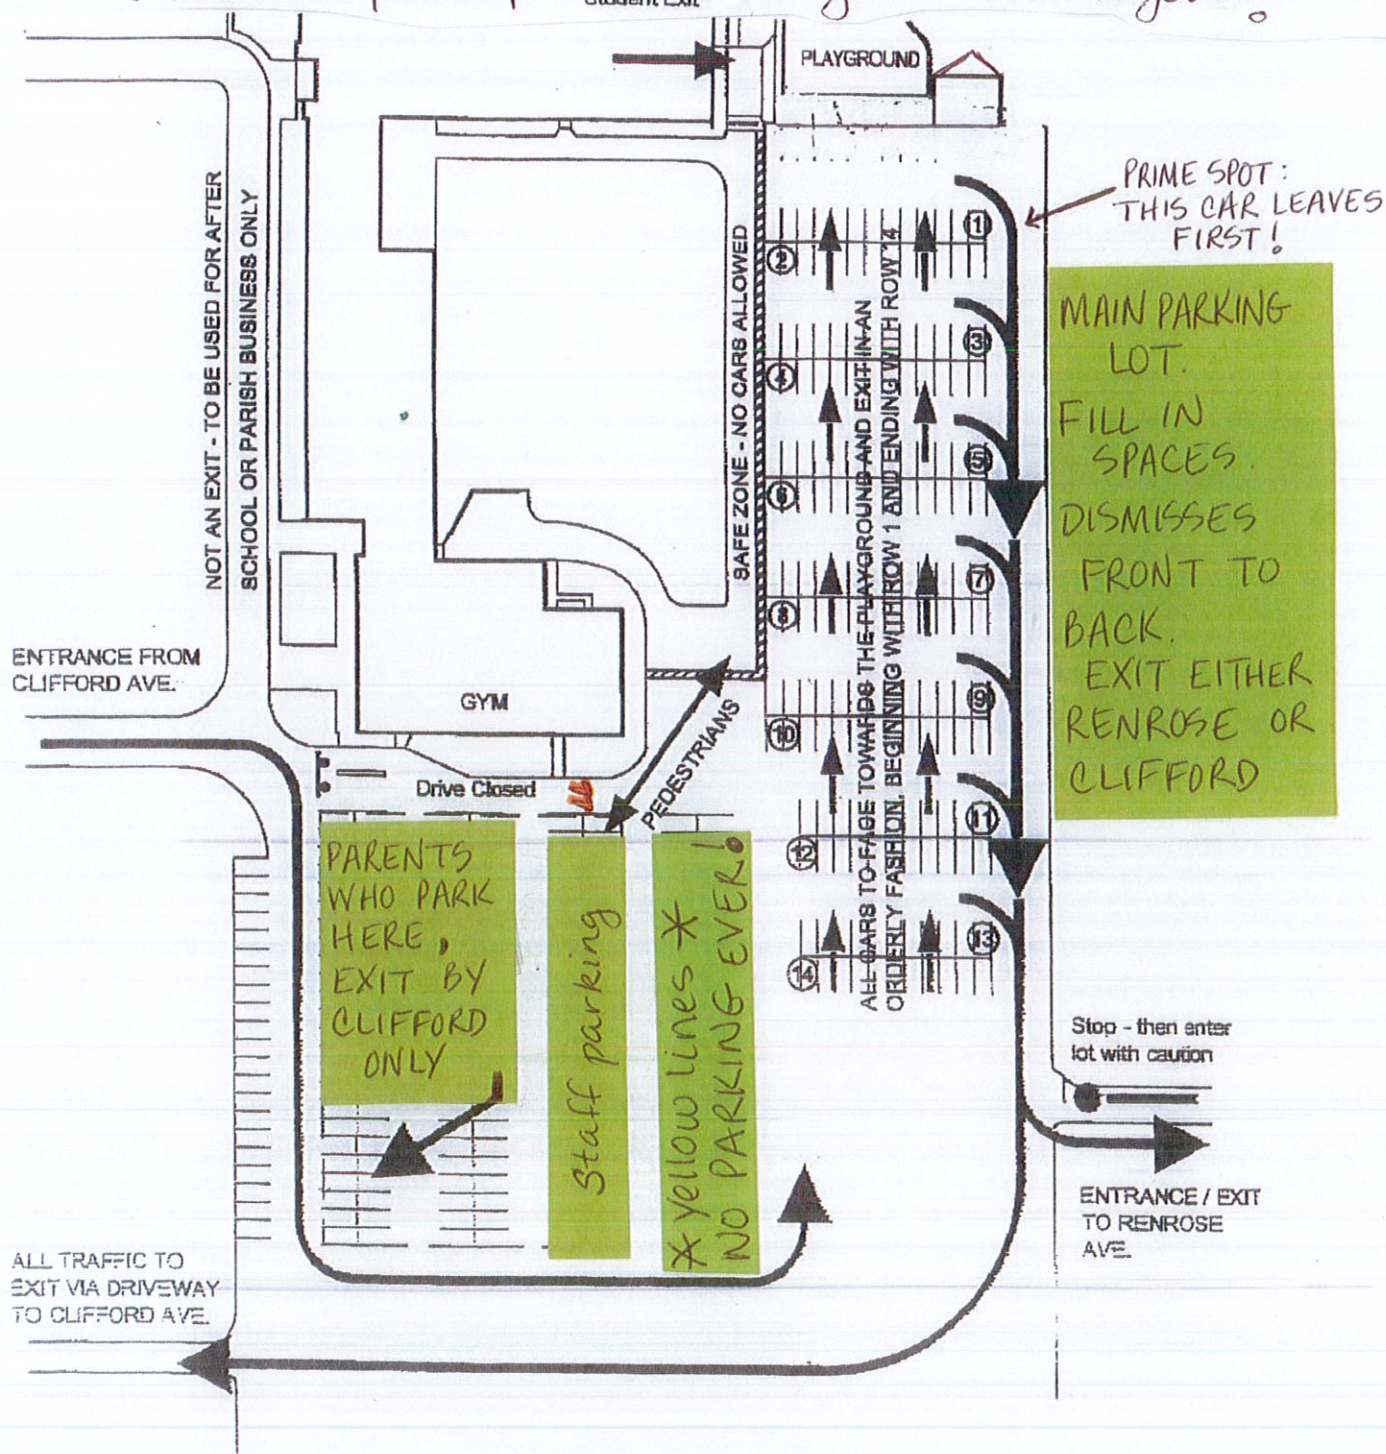 Student Exit
PLAYGROUND
PRIME SPOT:
THIS CAR LEAVES
FIRST!
NOT AN EXIT - TO BE USED FOR AFTER
SCHOOL OR PARISH BUSINESS ONLY
SAFE ZONE - NO CARS ALLOWED
ALL CARS TO FACE TOWARDS THE PLAYGROUND AND EXIT IN AN
ORDERLY FASHION, BEGINNING WITH ROW 1 AND ENDING WITH ROW 14
1
2
3
4
5
6
7
8
9
10
11
12
13
14
MAIN PARKING
LOT.
FILL IN
SPACES.
DISMISSES
FRONT TO
BACK.
EXIT EITHER
RENROSE OR
CLIFFORD
ENTRANCE FROM
CLIFFORD AVE.
GYM
PEDESTRIANS
Drive Closed
PARENTS
WHO PARK
HERE,
EXIT BY
CLIFFORD
ONLY
Staff parking
*Yellow lines *
NO PARKING EVER!
Stop - then enter
lot with caution
ENTRANCE / EXIT
TO RENROSE
AVE.
ALL TRAFFIC TO
EXIT VIA DRIVEWAY
TO CLIFFORD AVE.